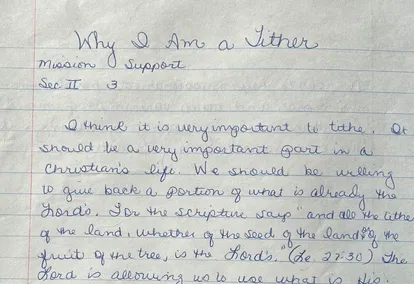 Why I Am a Tither
Mission Support
Sec II 3
I think it is very important to tithe. It
should be a very important part in a
Christian's life. We should be willing
to give back a portion of what is already the
Lord's. For the scripture says "and all the tithe
of the land, whether of the seed of the land, or of the
fruit of the tree, is the Lord's." (Le 27:30) The
Lord is allowing us to use what is His.